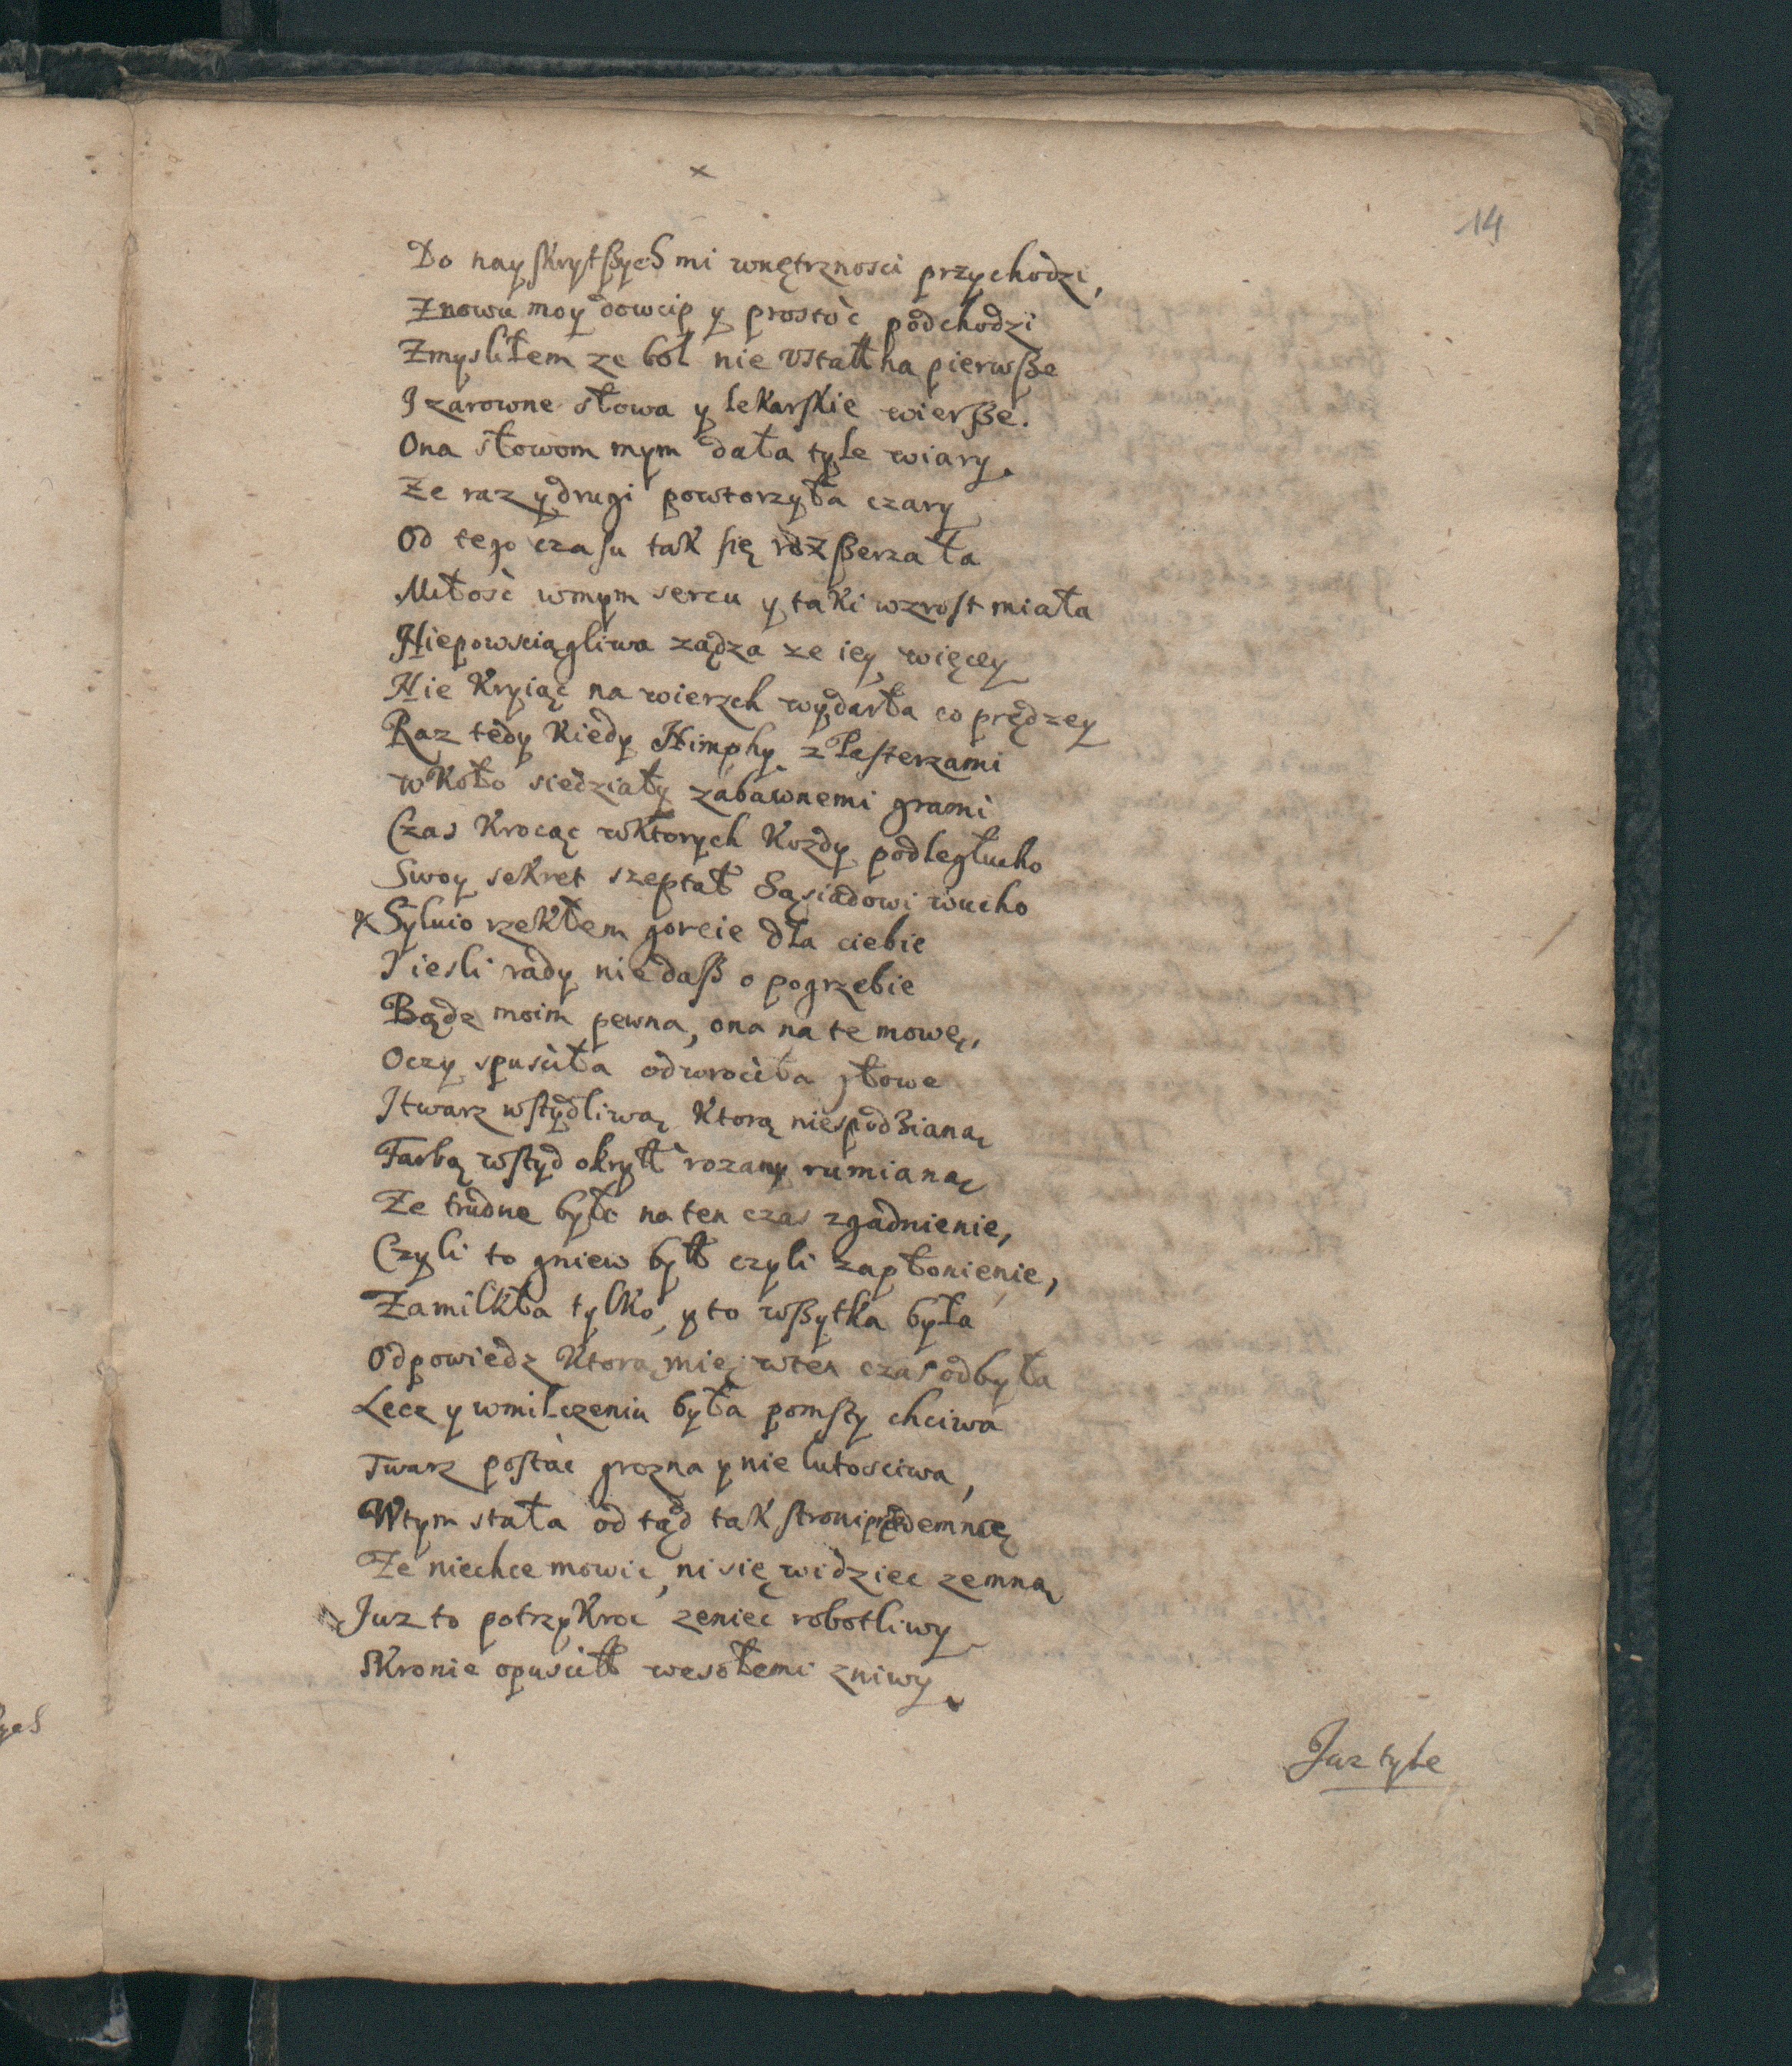 x
14
Do nayskrytßych mi wnętrznosci przychodzi,
Znowu moy dowcip y prostóć podchodzi
Zmysliłem ze ból nie Vstał na pierwße
I zarowne słowa y lekarskie wierße.
Ona słowom mym dała tyle wiary.
Ze raz y drugi powtorzyła czary
Od tego czasu tak się rozßerzała
Miłosć wmym sercu y taki wzrost miała
Niepowsciągliwa ządza ze iey więcey
Nie Kryiąc na wierzch wydarła co prędzey
Raz tedy Kiedy Nimphy z Pasterzami
wKoło siedziały zabawnemi grami
Czas Krocąc wKtorych Kozdy podległucho
Swoy sekret szeptał Sąsiadowi wucho
x Syluio rzekłem gorcie dla ciebie
I iesli rady nie daß o pogrzebie
Bądz moim pewna, ona na te mowę,
Oczy spusciła odwrociła głowe
I twarz wstydliwą Ktorą niespodzianą
Farbą wstyd okrył rozany rumianą
Ze trudne było na ten czas zgadnienie,
Czyli to gniew był czyli zapłonienie,
Zamilkła tylko, y to wßytka była
Odpowiedz Ktorą mię wten czas odbyła
Lecz y wmilczeniu była pomsty chciwa
Twarz postać grozna y nie lutosciwa,
Wtym stała od tąd tak stroni przedemnią
Ze niechce mowic, ni się widziec zemną
Juz to potrzykroc zeniec robotliwy
Skronie opuscił wesołemi zniwy.
Juz tyle